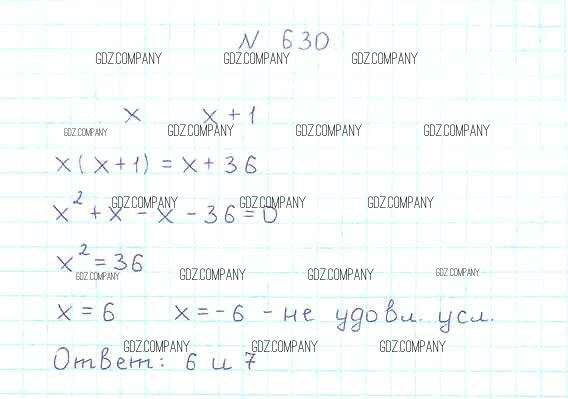 N 630
GDZ.COMPANY GDZ.COMPANY GDZ.COMPANY
x x + 1
GDZ.COMPANY GDZ.COMPANY GDZ.COMPANY GDZ.COMPANY
x(x+1) = x + 36
GDZ.COMPANY GDZ.COMPANY GDZ.COMPANY
x² + x - x - 36 = 0
x² = 36
GDZ.COMPANY GDZ.COMPANY GDZ.COMPANY GDZ.COMPANY
x = 6 x = -6 - не удовл. усл.
GDZ.COMPANY GDZ.COMPANY GDZ.COMPANY
Ответ: 6 и 7